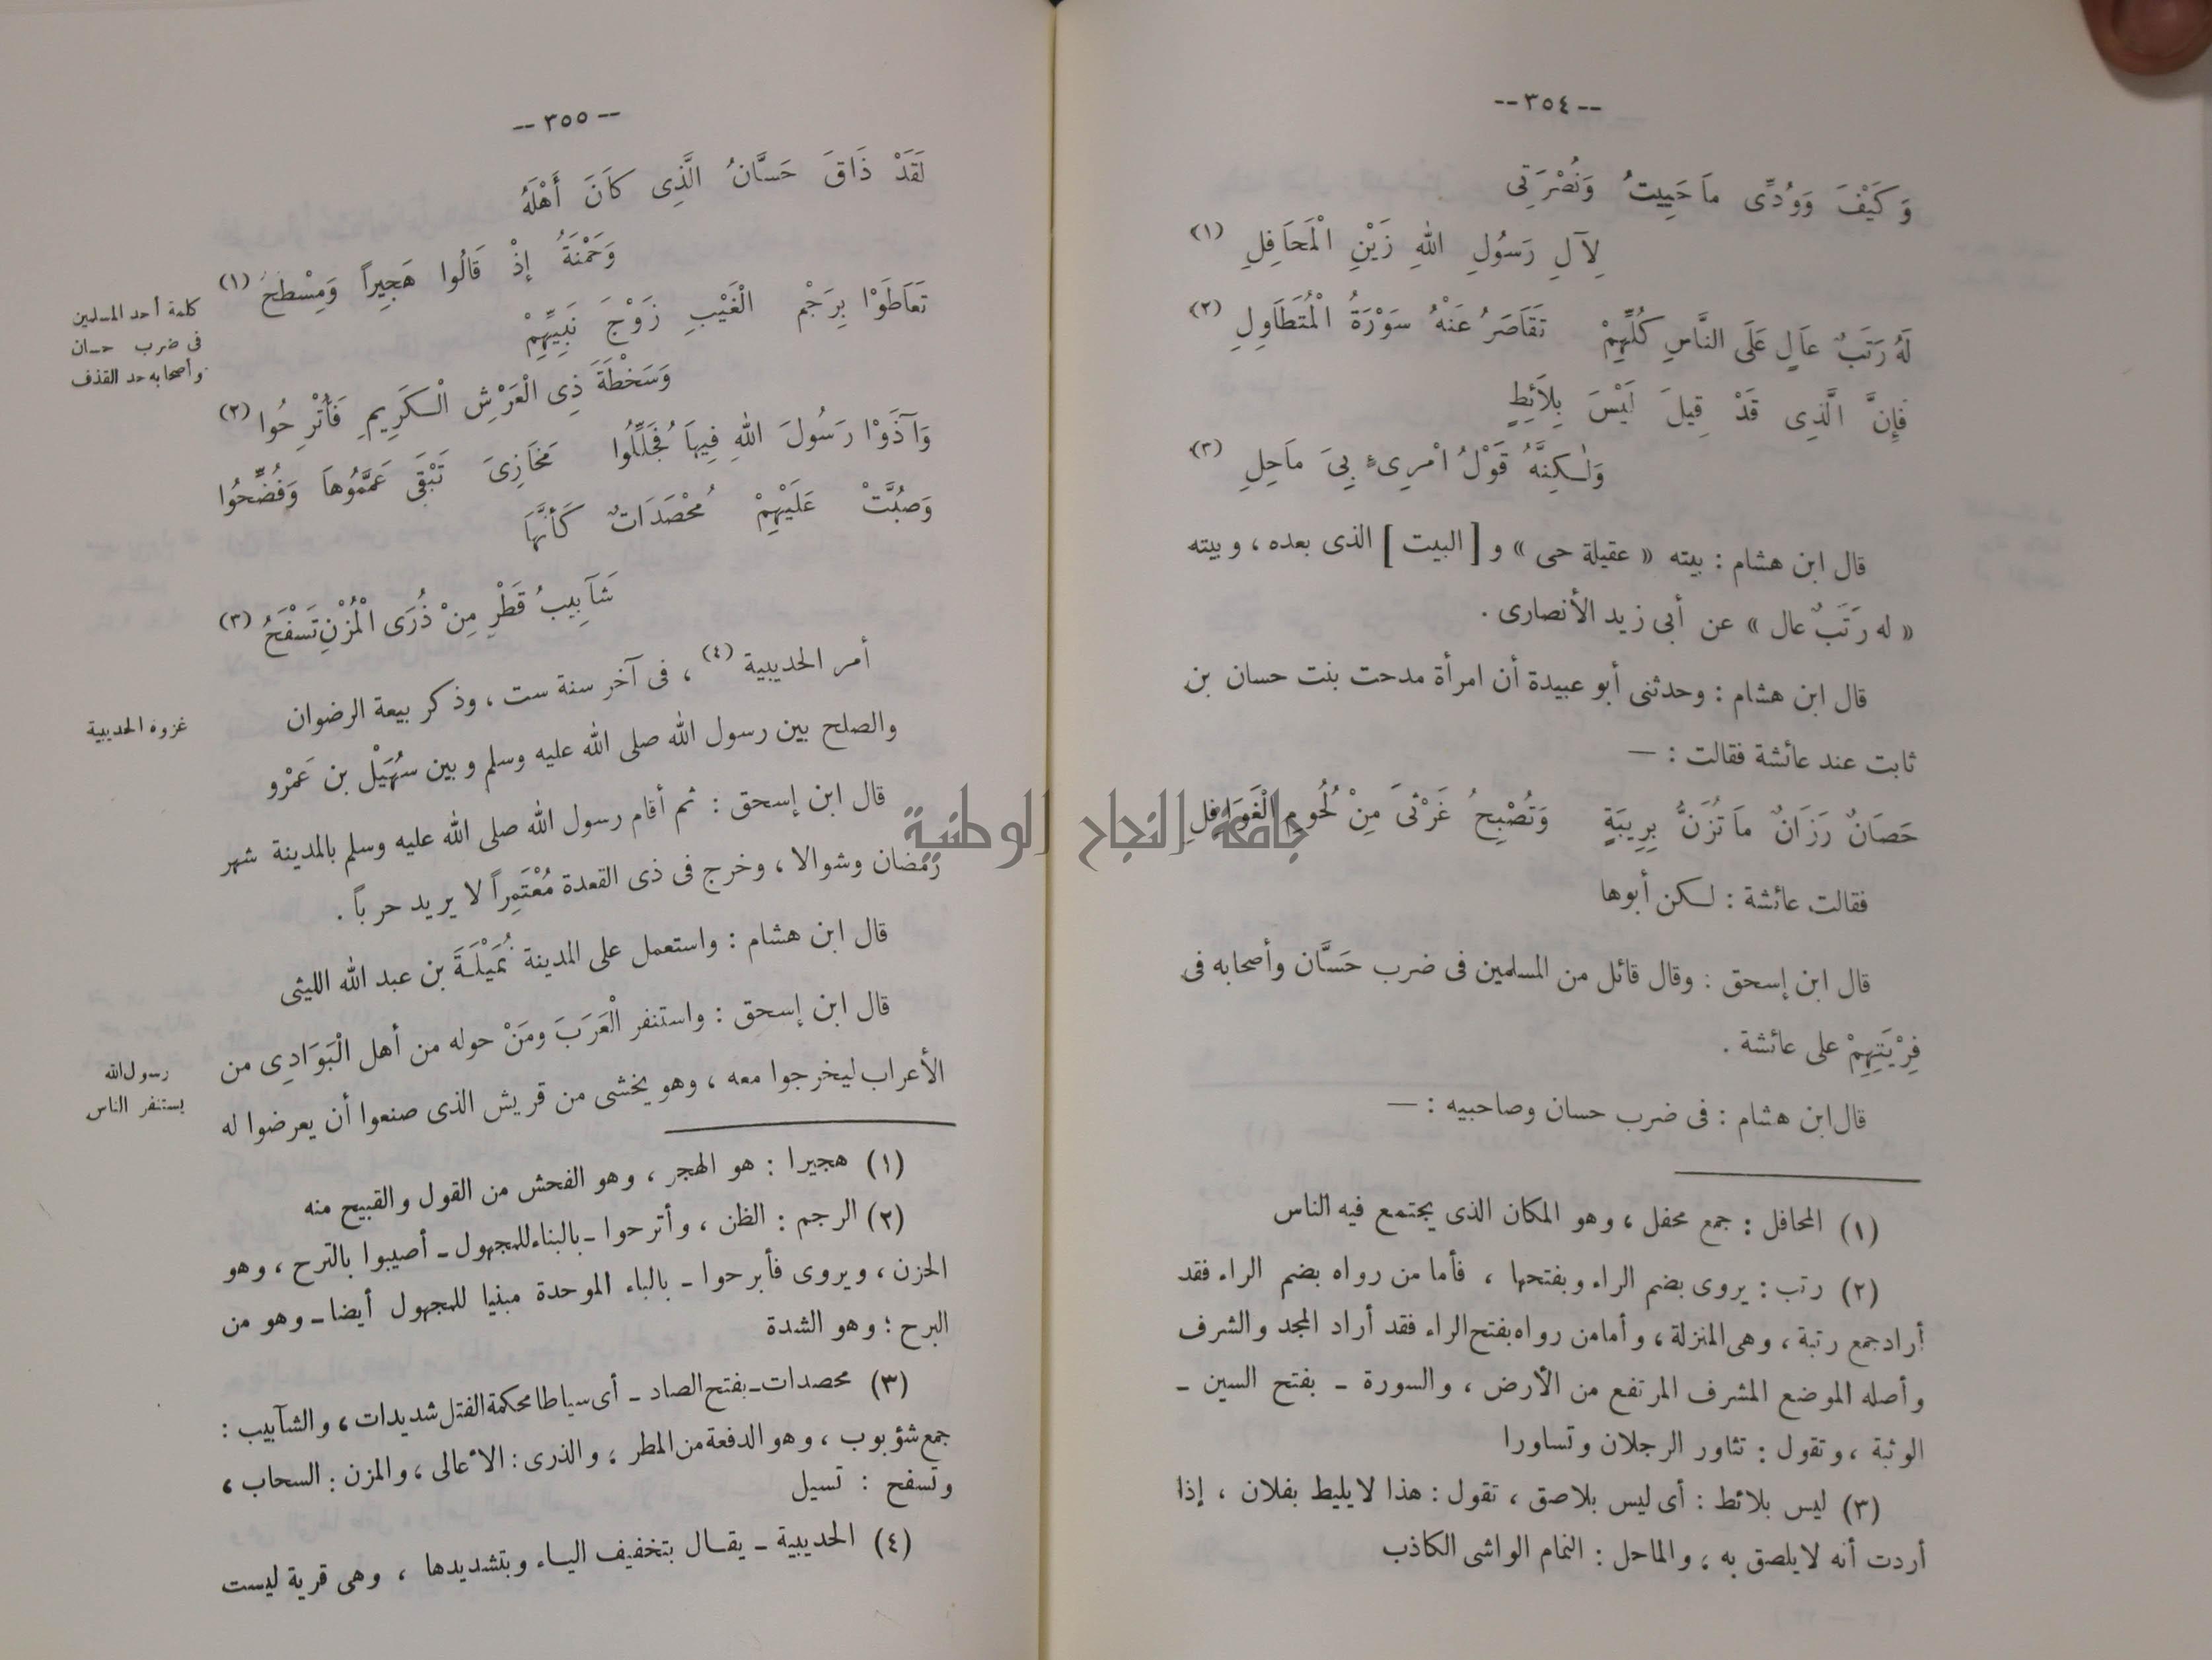 --٣٥٤--
وَكَيْفَ وَوُدِّى مَا حَيِيتُ وَنُصْرَتِى
لِآلِ رَسُولِ اللهِ زَيْنِ الْمَحَافِلِ (١)
لَهُ رَتَبٌ عَالٍ عَلَى النَّاسِ كُلِّهِمْ تَقَاصَرُ عَنْهُ سَوْرَةُ الْمُتَطَاوِلِ (٢)
فَإِنَّ الَّذِى قَدْ قِيلَ لَيْسَ بِلاَئِطٍ
وَلٰكِنَّهُ قَوْلُ امْرِىءٍ بِىَ مَاحِلِ (٣)
قال ابن هشام : بيته « عقيلة حى » و [ البيت ] الذى بعده ، وبيته
« له رَتَبٌ عال » عن أبى زيد الأنصارى .
قال ابن هشام : وحدثنى أبو عبيدة أن امرأة مدحت بنت حسان بن
ثابت عند عائشة فقالت : —
حَصَانٌ رَزَانٌ مَا تُزَنُّ بِرِيبَةٍ وَتُصْبِحُ غَرْثَى مِنْ لُحُومِ الْغَوَافِلِ
فقالت عائشة : لكن أبوها
قال ابن إسحق : وقال قائل من المسلمين فى ضرب حَسَّان وأصحابه فى
فِرْيَتِهِمْ على عائشة .
قال ابن هشام : فى ضرب حسان وصاحبيه : —
(١) المحافل : جمع محفل ، وهو المكان الذى يجتمع فيه الناس
(٢) رتب : يروى بضم الراء وبفتحها ، فأما من رواه بضم الراء فقد
أراد جمع رتبة ، وهى المنزلة ، وأما من رواه بفتح الراء فقد أراد المجد والشرف
وأصله الموضع المشرف المرتفع من الأرض ، والسورة - بفتح السين -
الوثبة ، وتقول : تثاور الرجلان وتساورا
(٣) ليس بلائط : أى ليس بلاصق ، تقول : هذا لا يليط بفلان ، إذا
أردت أنه لا يلصق به ، والماحل : النمام الواشى الكاذب
--٣٥٥--
لَقَدْ ذَاقَ حَسَّانُ الَّذِى كَانَ أَهْلَهُ
وَحَمْنَةُ إِذْ قَالُوا هَجِيراً وَمِسْطَحُ (١)
تَعَاطَوْا بِرَجْمِ الْغَيْبِ زَوْجَ نَبِيِّهِمْ
وَسَخْطَةَ ذِى الْعَرْشِ الْكَرِيمِ فَأُتْرِحُوا (٢)
وَآذَوْا رَسُولَ اللهِ فِيهَا فَجُلِّلُوا مَخَازِىَ تَبْقَى عَمَّمُوهَا وَفُضِّحُوا
وَصُبَّتْ عَلَيْهِمْ مُحْصَدَاتٌ كَأَنَّهَا
شَآبِيبُ قَطْرٍ مِنْ ذُرَى الْمُزْنِ تَسْفَحُ (٣)
كلمة أحد المسلمين
فى ضرب حسان
وأصحابه حد القذف
أمر الحديبية (٤) ، فى آخر سنة ست ، وذكر بيعة الرضوان
والصلح بين رسول الله صلى الله عليه وسلم وبين سُهَيْل بن عَمْرو
غزوة الحديبية
قال ابن إسحق : ثم أقام رسول الله صلى الله عليه وسلم بالمدينة شهر
رمضان وشوالا ، وخرج فى ذى القعدة مُعْتَمِراً لا يريد حرباً .
قال ابن هشام : واستعمل على المدينة نُمَيْلَةَ بن عبد الله الليثى
قال ابن إسحق : واستنفر الْعَرَبَ ومَنْ حوله من أهل الْبَوَادِى من
الأعراب ليخرجوا معه ، وهو يخشى من قريش الذى صنعوا أن يعرضوا له
رسول الله
يستنفر الناس
(١) هجيرا : هو الهجر ، وهو الفحش من القول والقبيح منه
(٢) الرجم : الظن ، وأترحوا - بالبناء للمجهول - أصيبوا بالترح ، وهو
الحزن ، ويروى فأبرحوا - بالباء الموحدة مبنيا للمجهول أيضا - وهو من
البرح ؛ وهو الشدة
(٣) محصدات - بفتح الصاد - أى سياطا محكمة الفتل شديدات ، والشآبيب :
جمع شؤبوب ، وهو الدفعة من المطر ، والذرى : الأعالى ، والمزن : السحاب ،
وتسفح : تسيل
(٤) الحديبية - يقال بتخفيف الياء وبتشديدها ، وهى قرية ليست
جامعة النجاح الوطنية